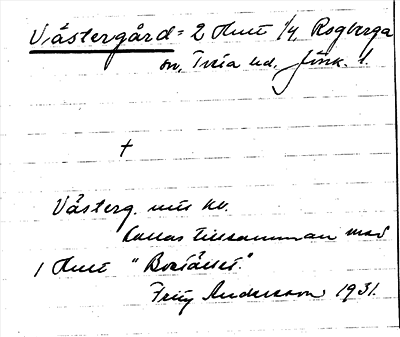 Västergård = 2 Oluf 1/4 Rogberga
sn, Tveta hd. Jönk. l.
+
Västerg. mtl kr.
kallas tillsamman med
1 Oluf "Bostället."
Fritz Andersson 1931.